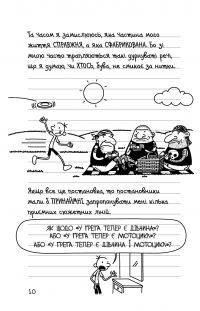 Та часом я замислююсь, яка частина мого
життя СПРАВЖНЯ, а яка СФАБРИКОВАНА. Бо зі
мною часто трапляються такі дурнуваті речі,
що я думаю, чи ХТОСЬ, бува, не смикає за нитки.
Якщо все це постановка, то постановники
мали б ПРИНАЙМНІ запропонувати мені кілька
приємних сюжетних ліній.
ЯК ЩОДО «У ҐРЕҐА ТЕПЕР Є ДІВЧИНА»?
АБО «У ҐРЕҐА ТЕПЕР Є МОТОЦИКЛ»?
АБО «У ҐРЕҐА ТЕПЕР Є ДІВЧИНА І МОТОЦИКЛ»?
10